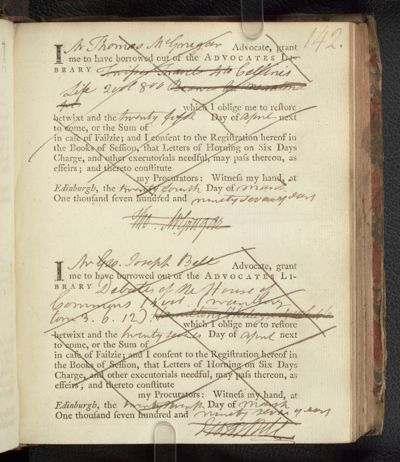 142.
I Mr Thomas McGregor Advocate, grant
me to have borrowed out of the ADVOCATES LI-
BRARY
Life 2 vol 800
which I oblige me to restore
betwixt and the twenty fourth Day of April next
to come, or the Sum of
in case of Failzie; and I consent to the Registration hereof in
the Books of Session, that Letters of Horning on Six Days
Charge, and other executorials needful, may pass thereon, as
effeirs; and thereto constitute
my Procurators: Witness my hand, at
Edinburgh, the twenty fourth Day of March
One thousand seven hundred and ninety seven years
Tho. McGregor
I Mr Geo. Joseph Bell Advocate, grant
me to have borrowed out of the ADVOCATES LI-
BRARY Debates of the House of
Commons
which I oblige me to restore
betwixt and the twenty Day of April next
to come, or the Sum of
in case of Failzie; and I consent to the Registration hereof in
the Books of Session, that Letters of Horning on Six Days
Charge, and other executorials needful, may pass thereon, as
effeirs; and thereto constitute
my Procurators: Witness my hand, at
Edinburgh, the Day of March
One thousand seven hundred and ninety seven years